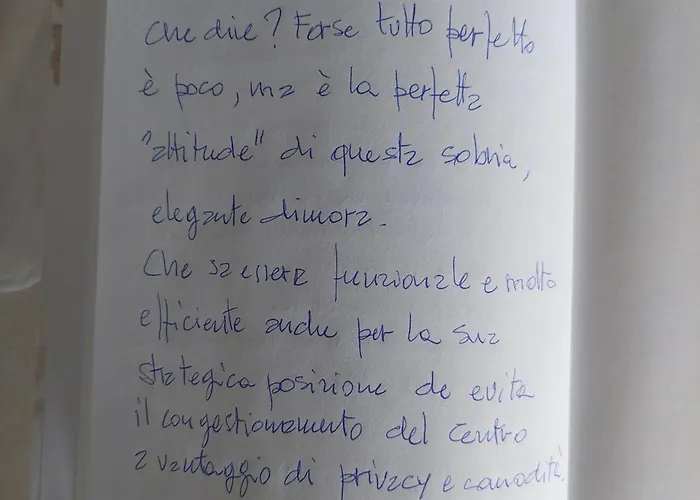 Che dire? Forse tutto perfetto
è poco, ma è la perfetta
"attitude" di questa sobria,
elegante dimora.
Che sa essere funzionale e molto
efficiente anche per la sua
strategica posizione che evita
il congestionamento del centro
a vantaggio di privacy e comodità.